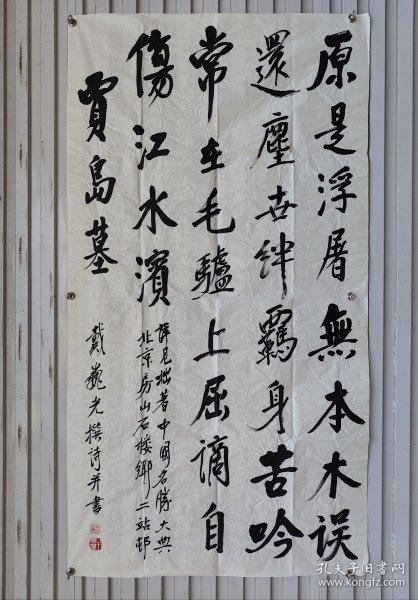 原是浮屠無本木误
還塵世絆羈身苦吟
常在毛驢上屈謫自
傷江水濱
賈島墓
詳見拙著中國名勝大典
北京房山石樓鄉二站邨
戴巍光撰詩并書
孔夫子旧書网
www.kongfz.com